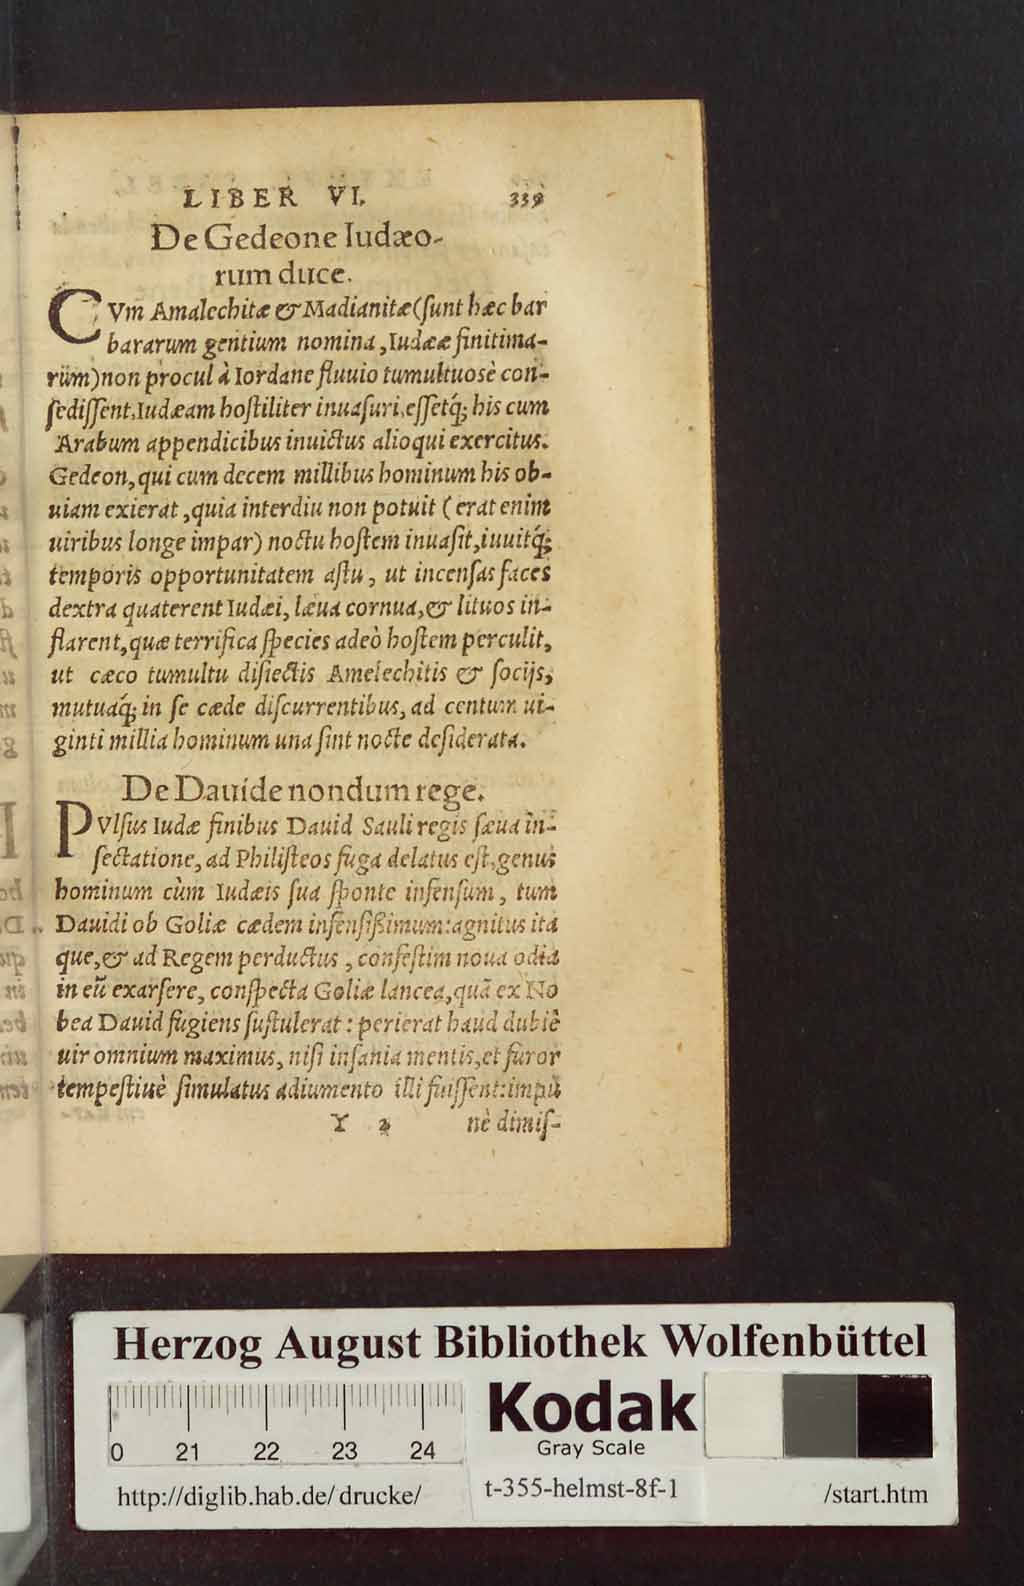 LIBER VI. 339
De Gedeone Iudæo-
rum duce.
CVm Amalechitæ & Madianitæ (sunt hæc bar
bararum gentium nomina, Iudææ finitima-
rum) non procul à Iordane fluuio tumultuosè con-
sedissent, Iudæam hostiliter inuasuri, essetq́; his cum
Arabum appendicibus inuictus alioqui exercitus.
Gedeon, qui cum decem millibus hominum his ob-
uiam exierat, quia interdiu non potuit (erat enim
uiribus longe impar) noctu hostem inuasit, iuuitq́;
temporis opportunitatem astu, ut incensas faces
dextra quaterent Iudæi, læua cornua, & lituos in-
flarent, quæ terrifica species adeò hostem perculit,
ut cæco tumultu disiectis Amelechitis & socijs,
mutuaq́; in se cæde discurrentibus, ad centum ui-
ginti millia hominum una sint nocte desiderata.
De Dauide nondum rege.
PVlsus Iudæ finibus Dauid Sauli regis sæua in-
sectatione, ad Philisteos fuga delatus est, genus
hominum cùm Iudæis sua sponte infensum, tum
Dauidi ob Goliæ cædem infensißimum: agnitus ita
que, & ad Regem perductus, confestim noua odia
in eũ exarsere, conspecta Goliæ lancea, quã ex No
bea Dauid fugiens sustulerat: perierat haud dubiè
uir omnium maximus, nisi insania mentis, et furor
tempestiuè simulatus adiumento illi fuissent: impu
Y 2 nè dimis-
Herzog August Bibliothek Wolfenbüttel
0 21 22 23 24
Kodak
Gray Scale
http://diglib.hab.de/drucke/ t-355-helmst-8f-1 /start.htm